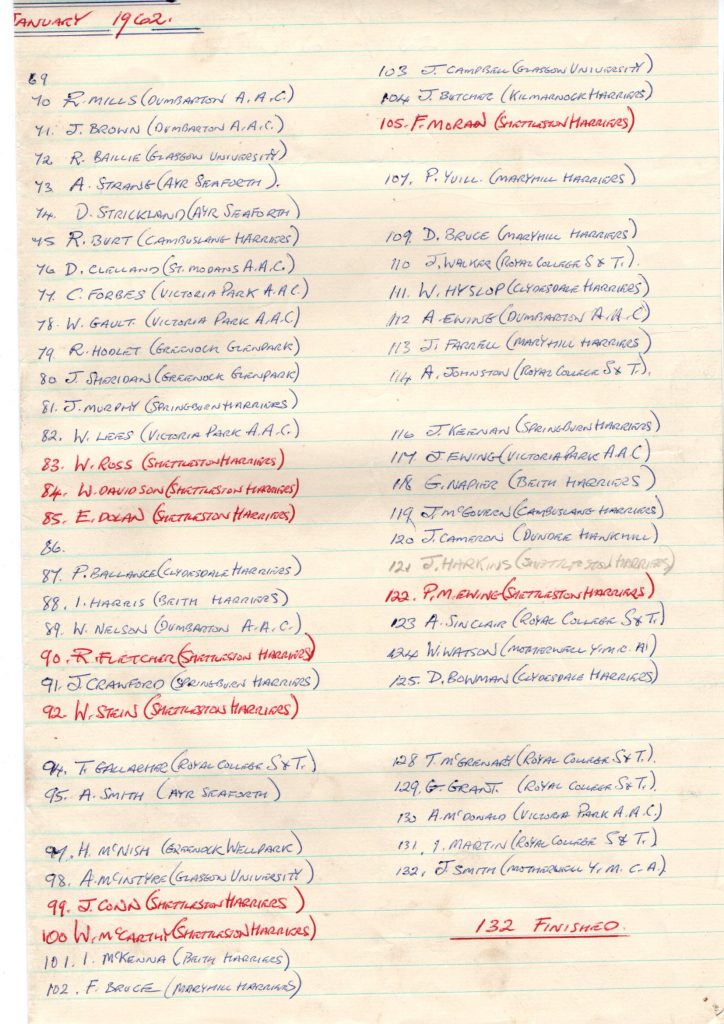 JANUARY 1962.
69
70 R. MILLS (DUMBARTON A.A.C)
71. J. BROWN (DUMBARTON A.A.C.)
72 R. BAILLIE (GLASGOW UNIVERSITY)
73 A. STRANG (AYR SEAFORTH).
74. D. STRICKLAND (AYR SEAFORTH)
75 R. BURT (CAMBUSLANG HARRIERS)
76 D. CLELLAND (ST. MODANS A.A.C)
77. C. FORBES (VICTORIA PARK A.A.C)
78. W. GAULT. (VICTORIA PARK A.A.C)
79. R. HODLET (GREENOCK GLENPARK)
80 J. SHERIDAN (GREENOCK GLENPARK)
81. J. MURPHY (SPRINGBURN HARRIERS)
82. W. LEES (VICTORIA PARK A.A.C.)
83. W. ROSS (SHETTLESTON HARRIERS)
84. W. DAVIDSON (SHETTLESTON HARRIERS)
85. E. DOLAN (SHETTLESTON HARRIERS)
86.
87. P. BALLANCE (CLYDESDALE HARRIERS)
88. I. HARRIS (BEITH HARRIERS)
89. W. NELSON (DUMBARTON A.A.C.)
90. R. FLETCHER (SHETTLESTON HARRIERS)
91. J. CRAWFORD (SPRINGBURN HARRIERS)
92. W. STEIN (SHETTLESTON HARRIERS)
94. T. GALLACHER (ROYAL COLLEGE S & T.)
95. A. SMITH (AYR SEAFORTH)
97. H. McNISH (GREENOCK WELLPARK)
98. A. McINTYRE (GLASGOW UNIVERSITY)
99. J. CONN (SHETTLESTON HARRIERS)
100 W. McCARTHY (SHETTLESTON HARRIERS)
101. I. McKENNA (BEITH HARRIERS)
102. F. BRUCE (MARYHILL HARRIERS)
103 J. CAMPBELL (GLASGOW UNIVERSITY)
104 J. BUTCHER (KILMARNOCK HARRIERS)
105. F. MORAN (SHETTLESTON HARRIERS)
107. P. YUILL. (MARYHILL HARRIERS)
109. D. BRUCE (MARYHILL HARRIERS)
110 J. WALKER (ROYAL COLLEGE S & T.).
111. W. HYSLOP (CLYDESDALE HARRIERS)
112 A. EWING (DUMBARTON A.A.C)
113 J. FARRELL (MARYHILL HARRIERS)
114 A. JOHNSTON (ROYAL COLLEGE S & T.).
116 J. KEENAN (SPRINGBURN HARRIERS)
117 J EWING (VICTORIA PARK A.A.C)
118 G. NAPIER (BEITH HARRIERS)
119 J. McGOVERN (CAMBUSLANG HARRIERS)
120 J. CAMERON (DUNDEE HAWKHILL)
121 J. HARKINS (SHETTLESTON HARRIERS)
122. P.M. EWING (SHETTLESTON HARRIERS)
123 A. SINCLAIR (ROYAL COLLEGE S & T.)
124 W. WATSON (MOTHERWELL Y.M.C.A)
125. D. BOWMAN (CLYDESDALE HARRIERS)
128 T. McGRENARY (ROYAL COLLEGE S & T.).
129. G. GRANT. (ROYAL COLLEGE S & T.).
130 A. McDONALD (VICTORIA PARK A.A.C.)
131. I. MARTIN (ROYAL COLLEGE S & T.)
132. J. SMITH (MOTHERWELL Y.M.C.A).
132 FINISHED.